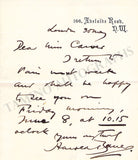 166, Adelaide Road,
N.W.
London
Dear Miss
I return to
Paris next week
and shall be happy
to see you on
Friday morning,
June 8, at 10.15
o'clock
Yours